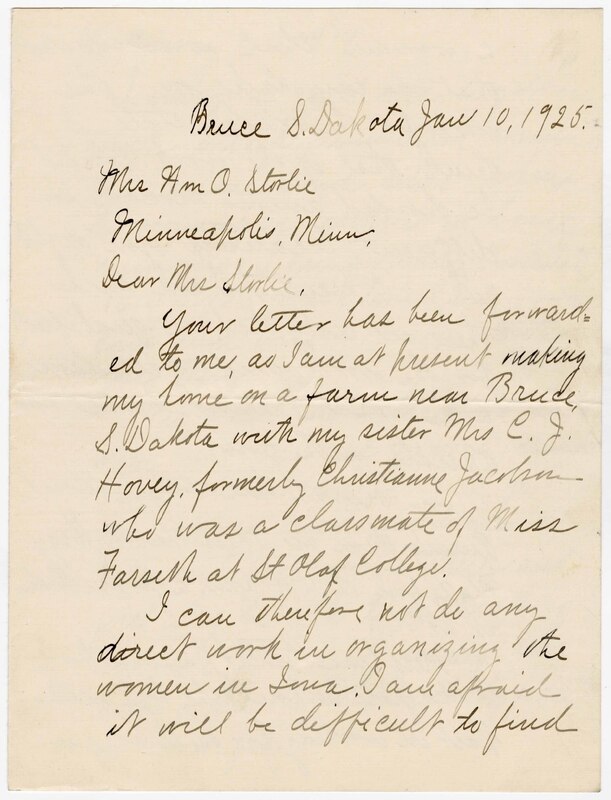 Bruce S. Dakota Jan 10, 1925.
Mrs Wm O. Storlie
Minneapolis, Minn.
Dear Mrs Storlie,
Your letter has been forward=
ed to me, as I am at present making
my home on a farm near Bruce,
S. Dakota with my sister Mrs C. J.
Hovey, formerly Christianne Jacobson
who was a classmate of Miss
Farseth at St Olaf College.
I can therefore not do any
direct work in organizing the
women in Iowa. I am afraid
it will be difficult to find